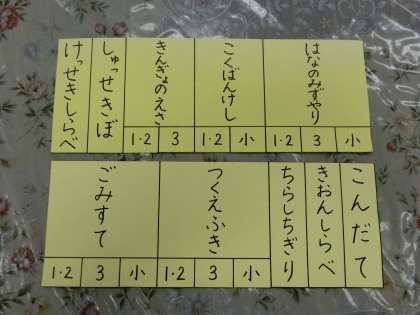 はなのみずやり
1・2 3 小
こくばんけし
1・2 小
きんぎょのえさ
1・2 3
しゅっせきぼ
けっせきしらべ
こんだて
きおんしらべ
ちらしちぎり
つくえふき
1・2 3 小
ごみすて
1・2 3 小